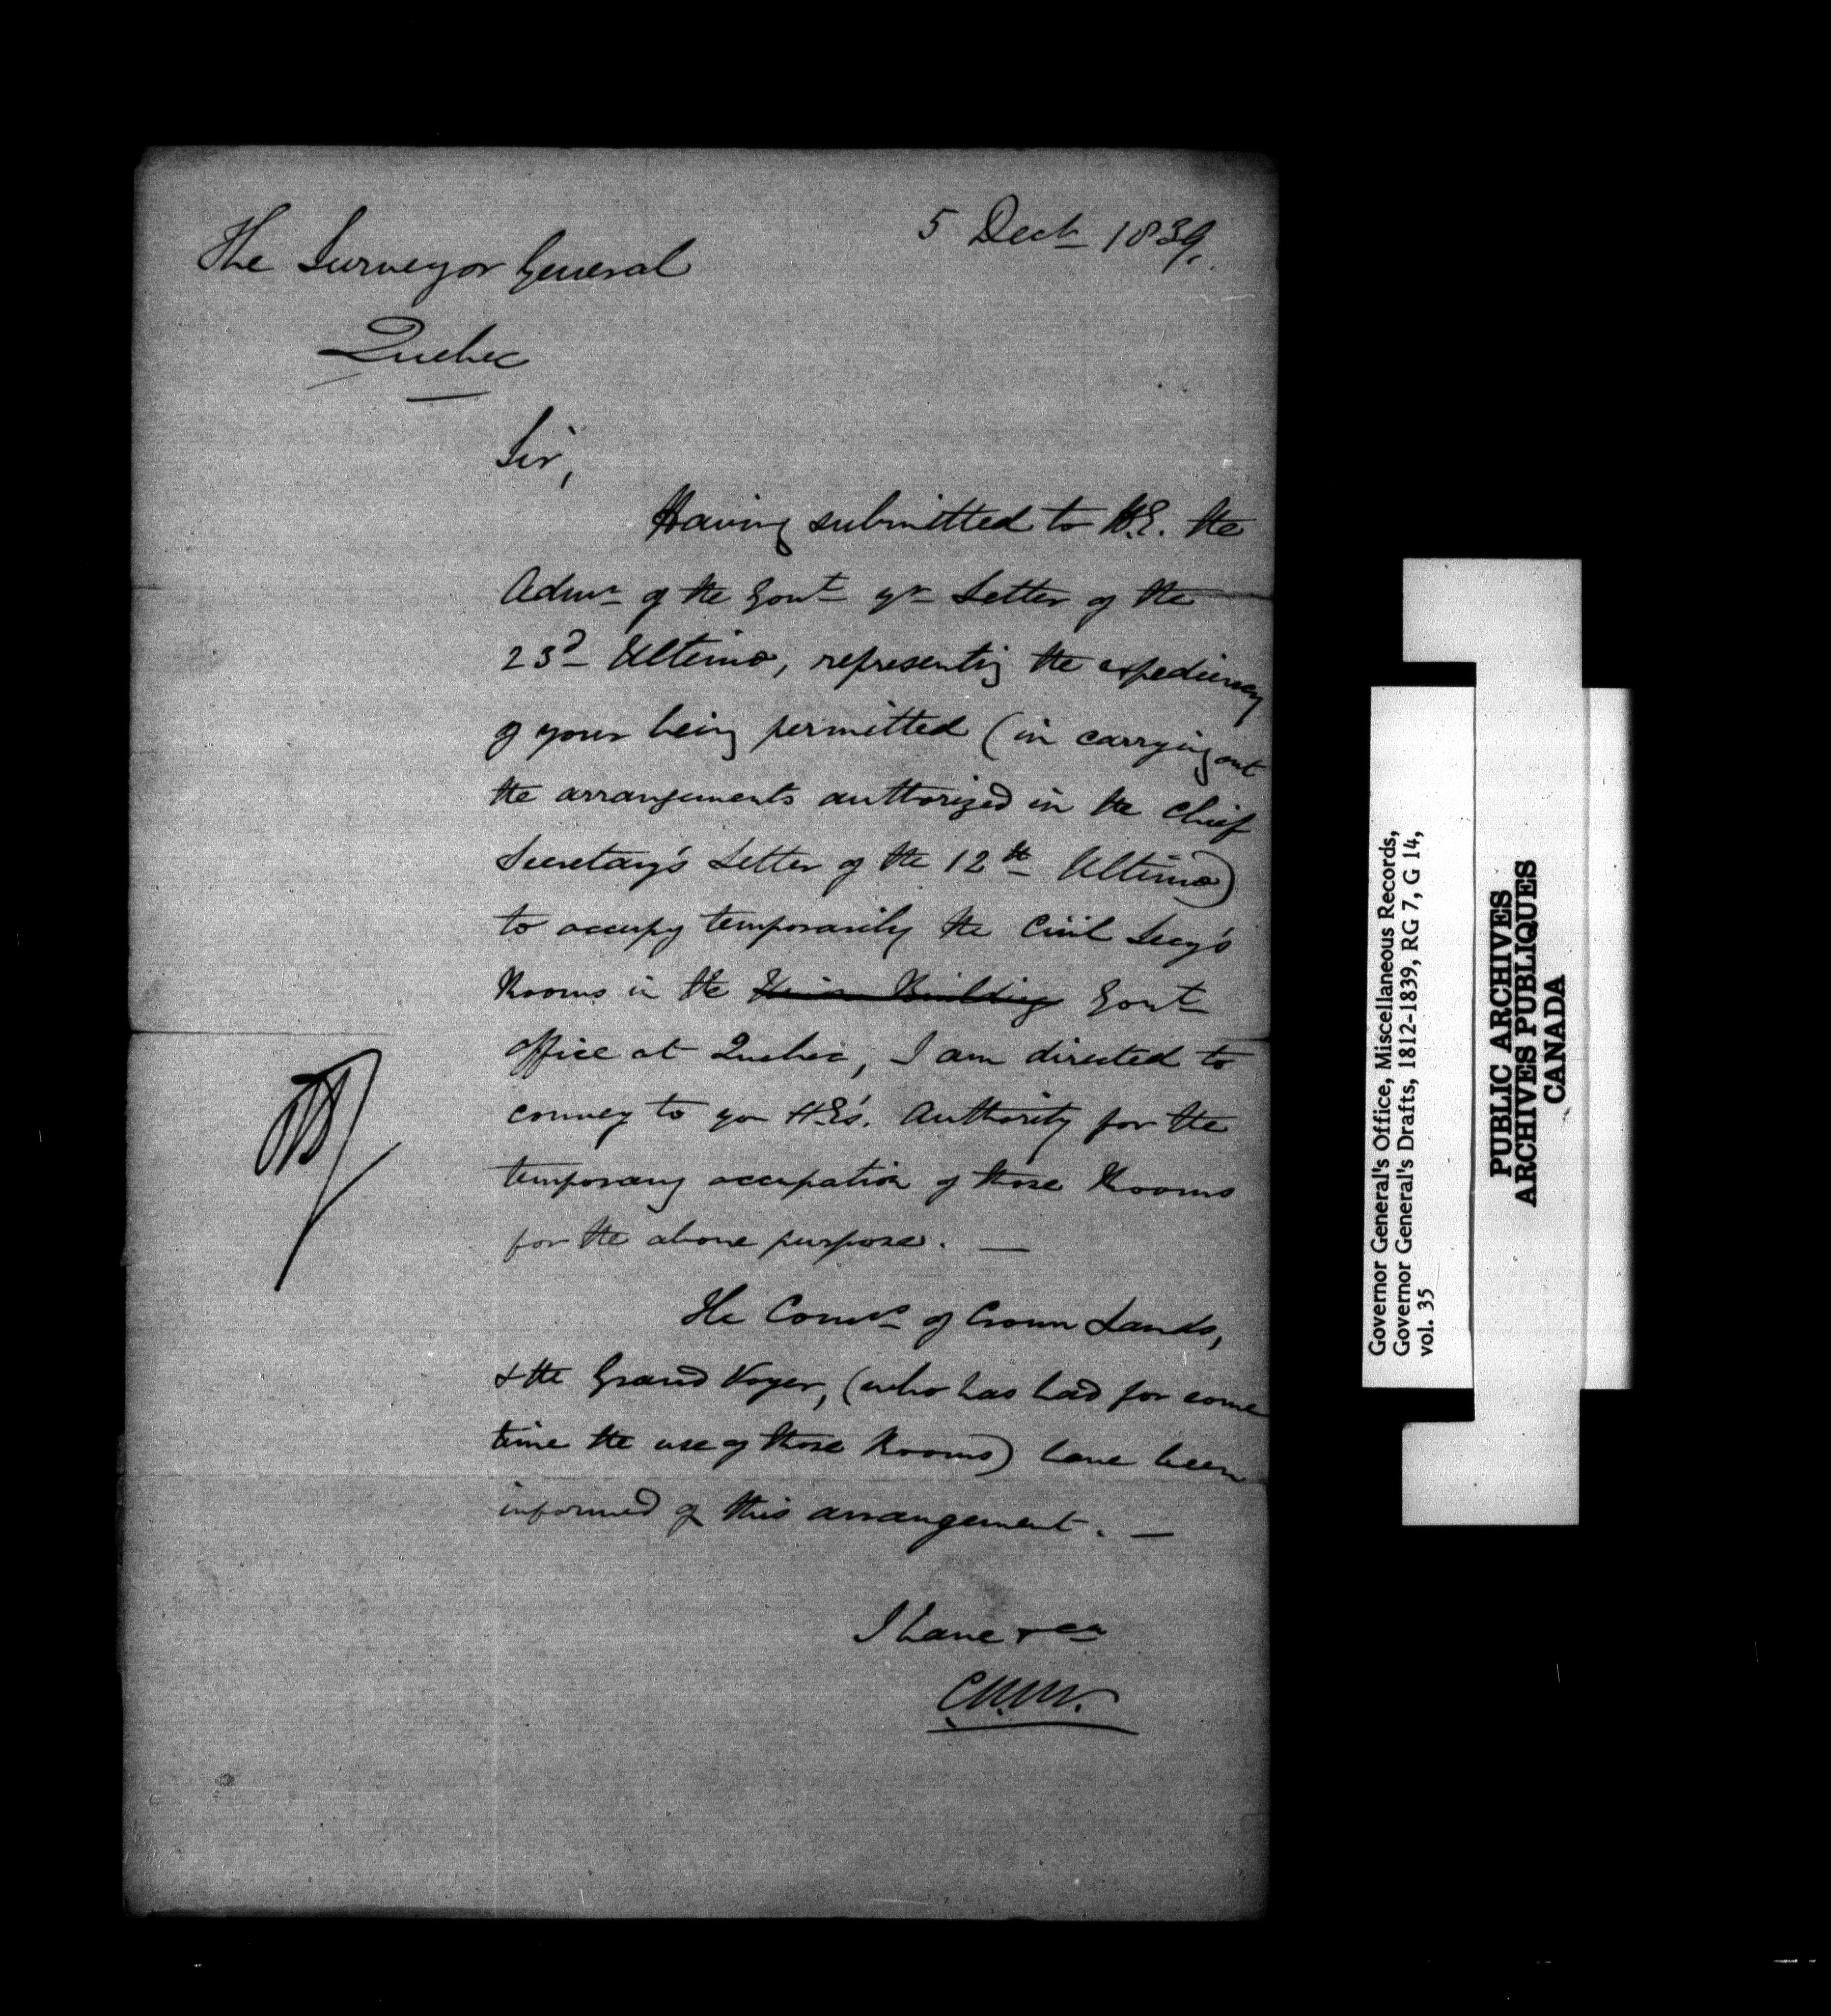 5 Decr 1839.
The Surveyor General
Quebec
Sir,
Having submitted to H.E. the
Admr of the Govt yr Letter of the
23d Ultimo, representing the expediency
of your being permitted (in carrying out
the arrangements authorized in the Chief
Secretary's Letter of the 12th Ultimo)
to occupy temporarily the Civil Secy's
Rooms in the Union Building Govt
office at Quebec, I am directed to
convey to you H.E's. Authority for the
temporary occupation of those Rooms
for the above purpose. —
The Comr of Crown Lands,
& the Grand Voyer, (who has had for some
time the use of those Rooms) have been
informed of this arrangement. —
I have &ca
Governor General's Office, Miscellaneous Records,
Governor General's Drafts, 1812-1839, RG 7, G 14,
vol. 35
PUBLIC ARCHIVES
ARCHIVES PUBLIQUES
CANADA